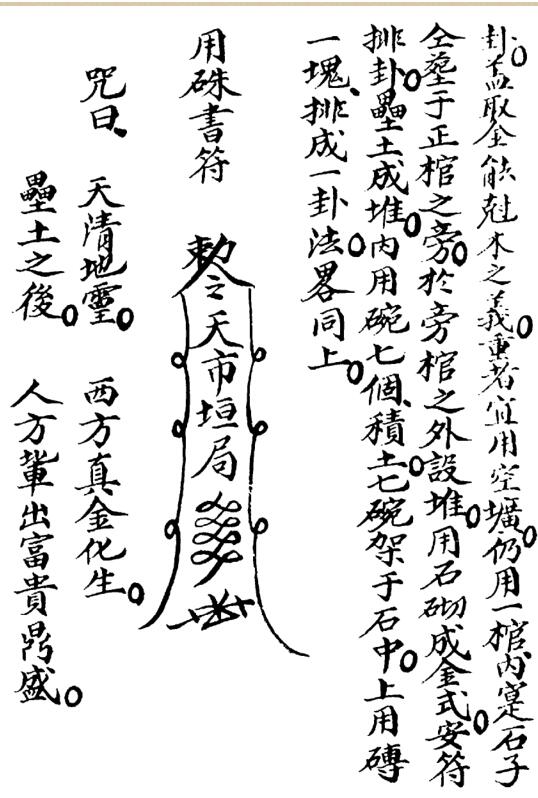 卦。盖取金能尅木之義。重者宜用空壙。仍用一棺內寔石子
仝塟于正棺之旁。於旁棺之外設堆。用石砌成金式。安符
排卦。壘土成堆。內用碗七個、積土。七碗架于石中。上用磚
一塊、排成一卦。法畧同上。
用硃書符
敕令之天市垣局
咒曰、天清地靈。西方真金化生。
壘土之後。人方輩出富貴鼎盛。